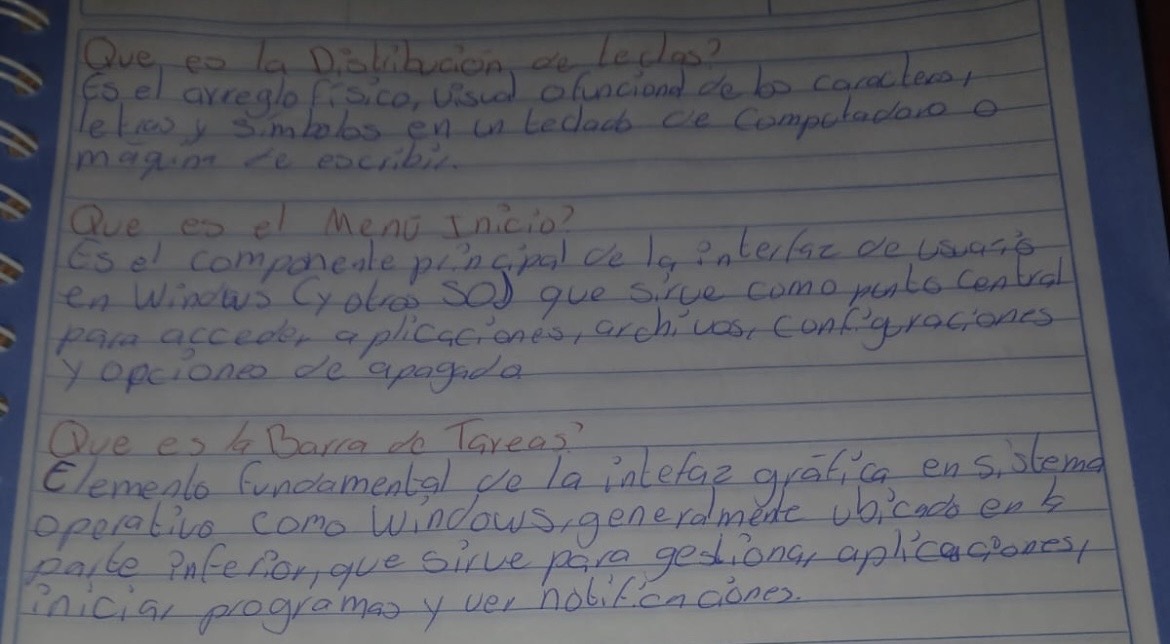 Que es la Distribución de teclas?
Es el arreglo físico, visual o funcional de los caracteres,
letras y simbolos en un teclado de Computadora o
maquina de escribir.
Que es el Menú Inicio?
Es el componente principal de la interfaz de usuario
en Windows (y otros SO) que sirve como punto central
para acceder aplicaciones, archivos, configraciones
y opciones de apagado
Que es la Barra de Tareas?
Elemento fundamental de la intefaz gráfica en sistema
operativo como Windows, generalmente ubicado en la
parte inferior, que sirve para gestionar aplicaciones,
iniciar programas y ver notificaciones.